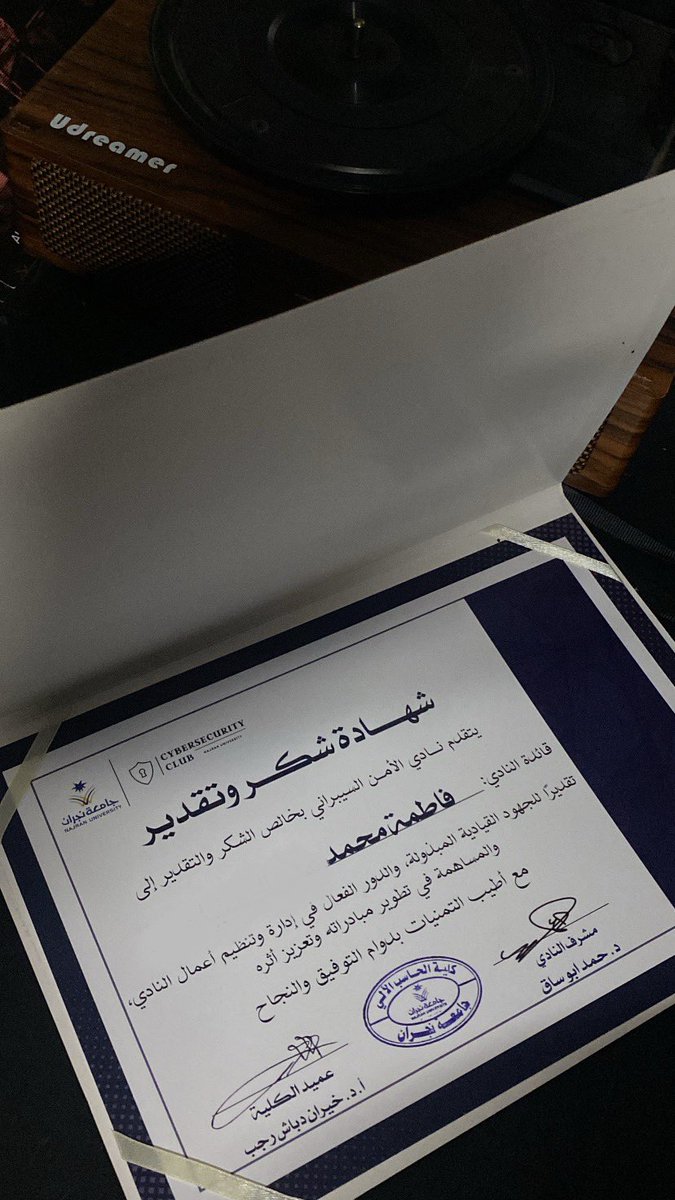 Udreamer
CYBERSECURITY
CLUB
NAJRAN UNIVERSITY
جامعة نجران
NAJRAN UNIVERSITY
شهادة شكر وتقدير
يتقدم نادي الأمن السيبراني بخالص الشكر والتقدير إلى
قائدة النادي: فاطمة محمد
تقديرًا للجهود القيادية المبذولة، والدور الفعال في إدارة وتنظيم أعمال النادي،
والمساهمة في تطوير مبادراته وتعزيز أثره
مع أطيب التمنيات بدوام التوفيق والنجاح
مشرف النادي
د. حمد ابوساق
كلية الحاسب الآلي
جامعة نجران
NAJRAN UNIVERSITY
جامعة نجران
عميد الكلية
أ.د. خيران دباش رجب